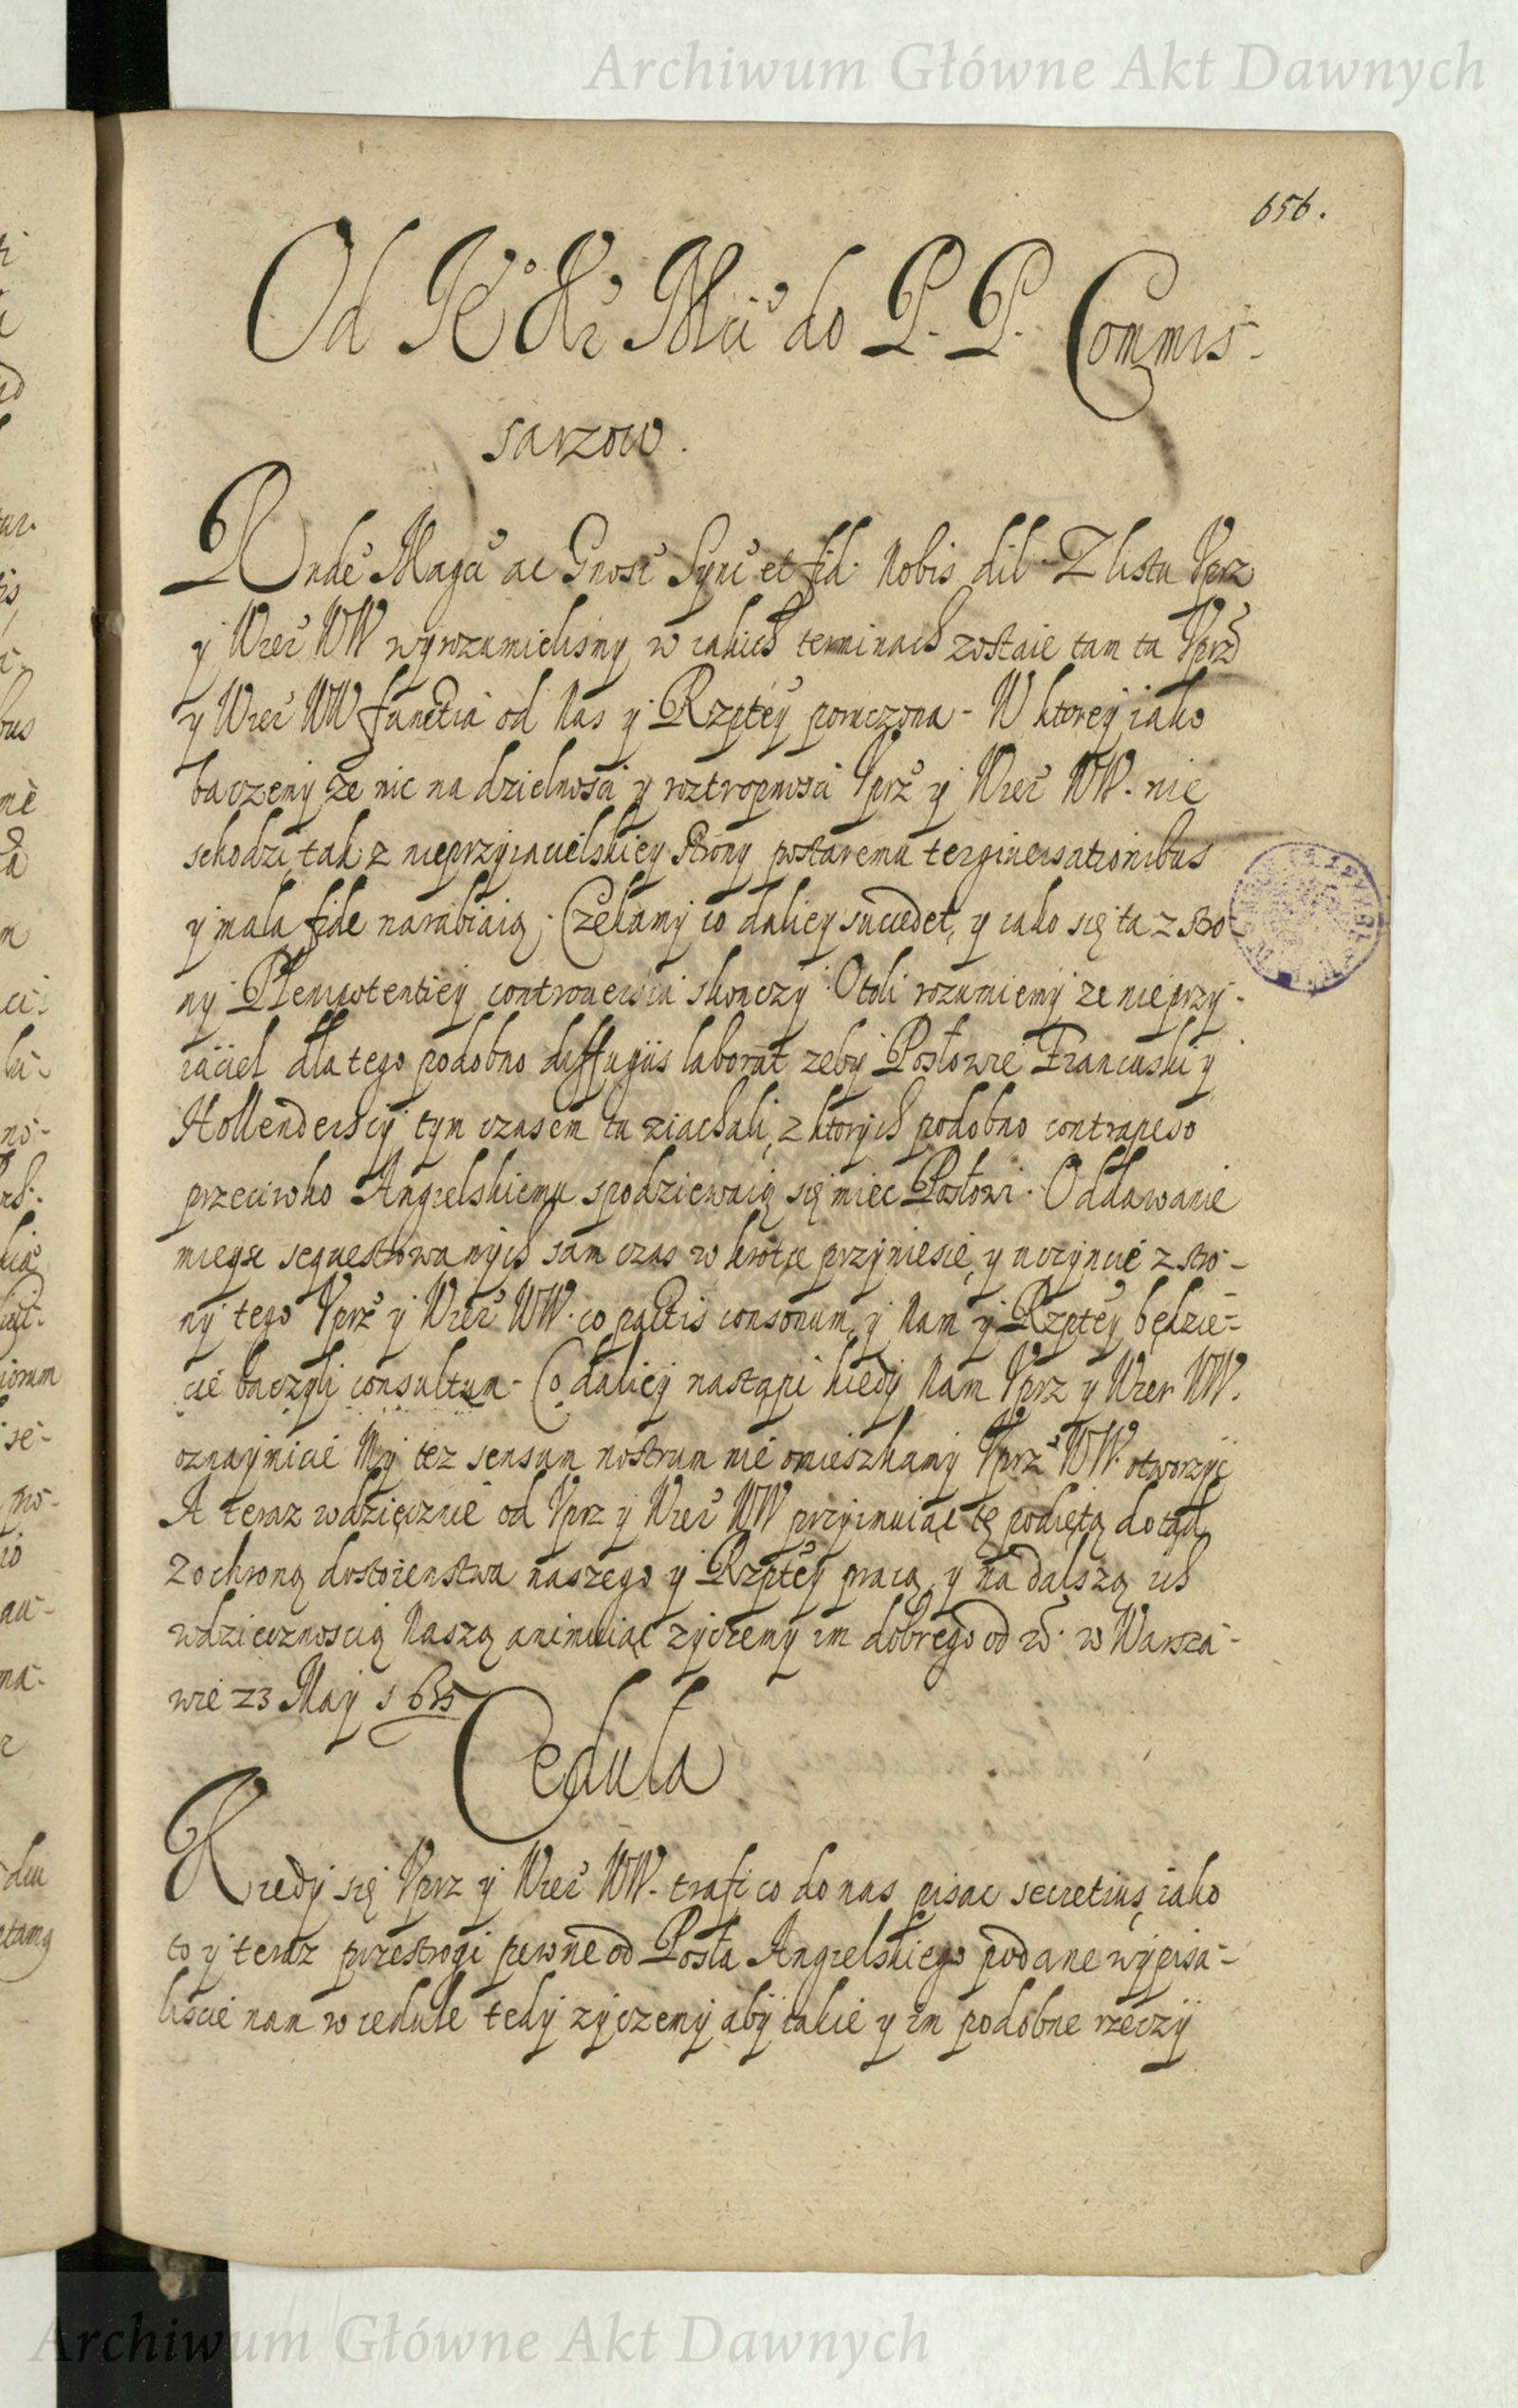 Archiwum Główne Akt Dawnych
656.
Od Je° Kr Mci do P. P. Commis-
sarzow.
Rnde Magci ac Gnosi Synć et fid. Nobis dil. Z listu Vprz
y Wier WW wyrozumielismy w iakich terminach zostaie tam ta Vprz
y Wier WW functia od Nas y Rzptey poruczona - W ktorey iako
baczemy ze nic na dzielnosci y roztropnosci Vprz y Wier WW. nie
schodzi, tak z nieprzyiacielskiey strony postaremu tergiuersationibus
y mala fide narabiaią. Czekamy co daliey succedet, y iako się ta z stro-
ny Plenipotentiey controuersia skonczy. Otoli rozumiemy ze nieprzy-
iaciel dla tego podobno diffugiis laborat zeby Posłowie Francuski y
Hollenderscy tym czasem tu ziachali, z ktorych podobno contrapeso
przeciwko Angielskiemu spodziewaią się miec Posłowi. Oddawanie
mieysc sequestrowanych sam czas w krotce przyniesie, y uczyncie z stro-
ny tego Vprz y Wier WW. co pactis consonum, y Nam y Rzptey będzie-
cie baczyli consultum - Co daliey nastąpi kiedy Nam Vprz y Wier WW.
oznaymicie My tez sensum nostrum nie omieszkamy Vprz WW. otworzyc
A teraz wdzięcznie od Vprz y Wier WW przyimuiąc tę podiętą dotąd
z ochroną dostoienstwa naszego y Rzptey pracą, y na dalszą ich
wdzięcznoscią Naszą animuiąc zyczemy im dobrego od w Warsza-
wie 23 May 1635
Cedula
Kiedy się Vprz y Wier WW. trafi co do nas pisac secretius, iako
to y teraz przestrogi pewne od Posła Angielskiego podane wypisa-
liscie nam w cedule tedy zyczemy aby takie y im podobne rzeczy
Archiwum Główne Akt Dawnych